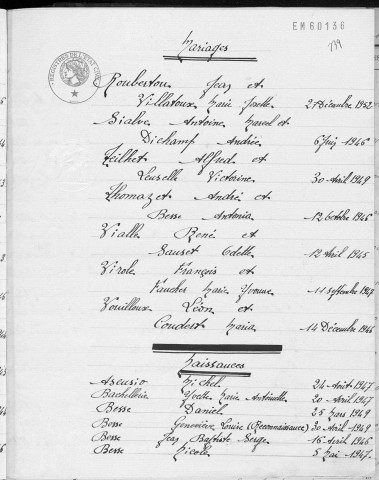 EM60136
739
Mariages
Rouberton Jean et
Villatoux Marie Yvette 27 Décembre 1952
Sialve Antoine Marcel et
Dichamp Andrée 6 Juin 1946
Teilhet Alfred et
Victorine 30 Avril 1949
Thomazet André et
Besse Antonia 12 Octobre 1946
Vialle René et
Sauset Odette 12 Avril 1945
Virole François et
Faucher Marie Yvonne 11 Septembre 1947
Vouilloux Léon et
Coudert Maria 14 Décembre 1946
Naissances
Ascusio Michel 24 Août 1947
Bachellerie Yvette Marie Antoinette 20 Avril 1947
Besse Daniel 25 Mars 1949
Besse Geneviève Louise (Reconnaissance) 30 Avril 1949
Besse Jean Baptiste Serge 16 Avril 1946
Besse Nicole 5 Mai 1947